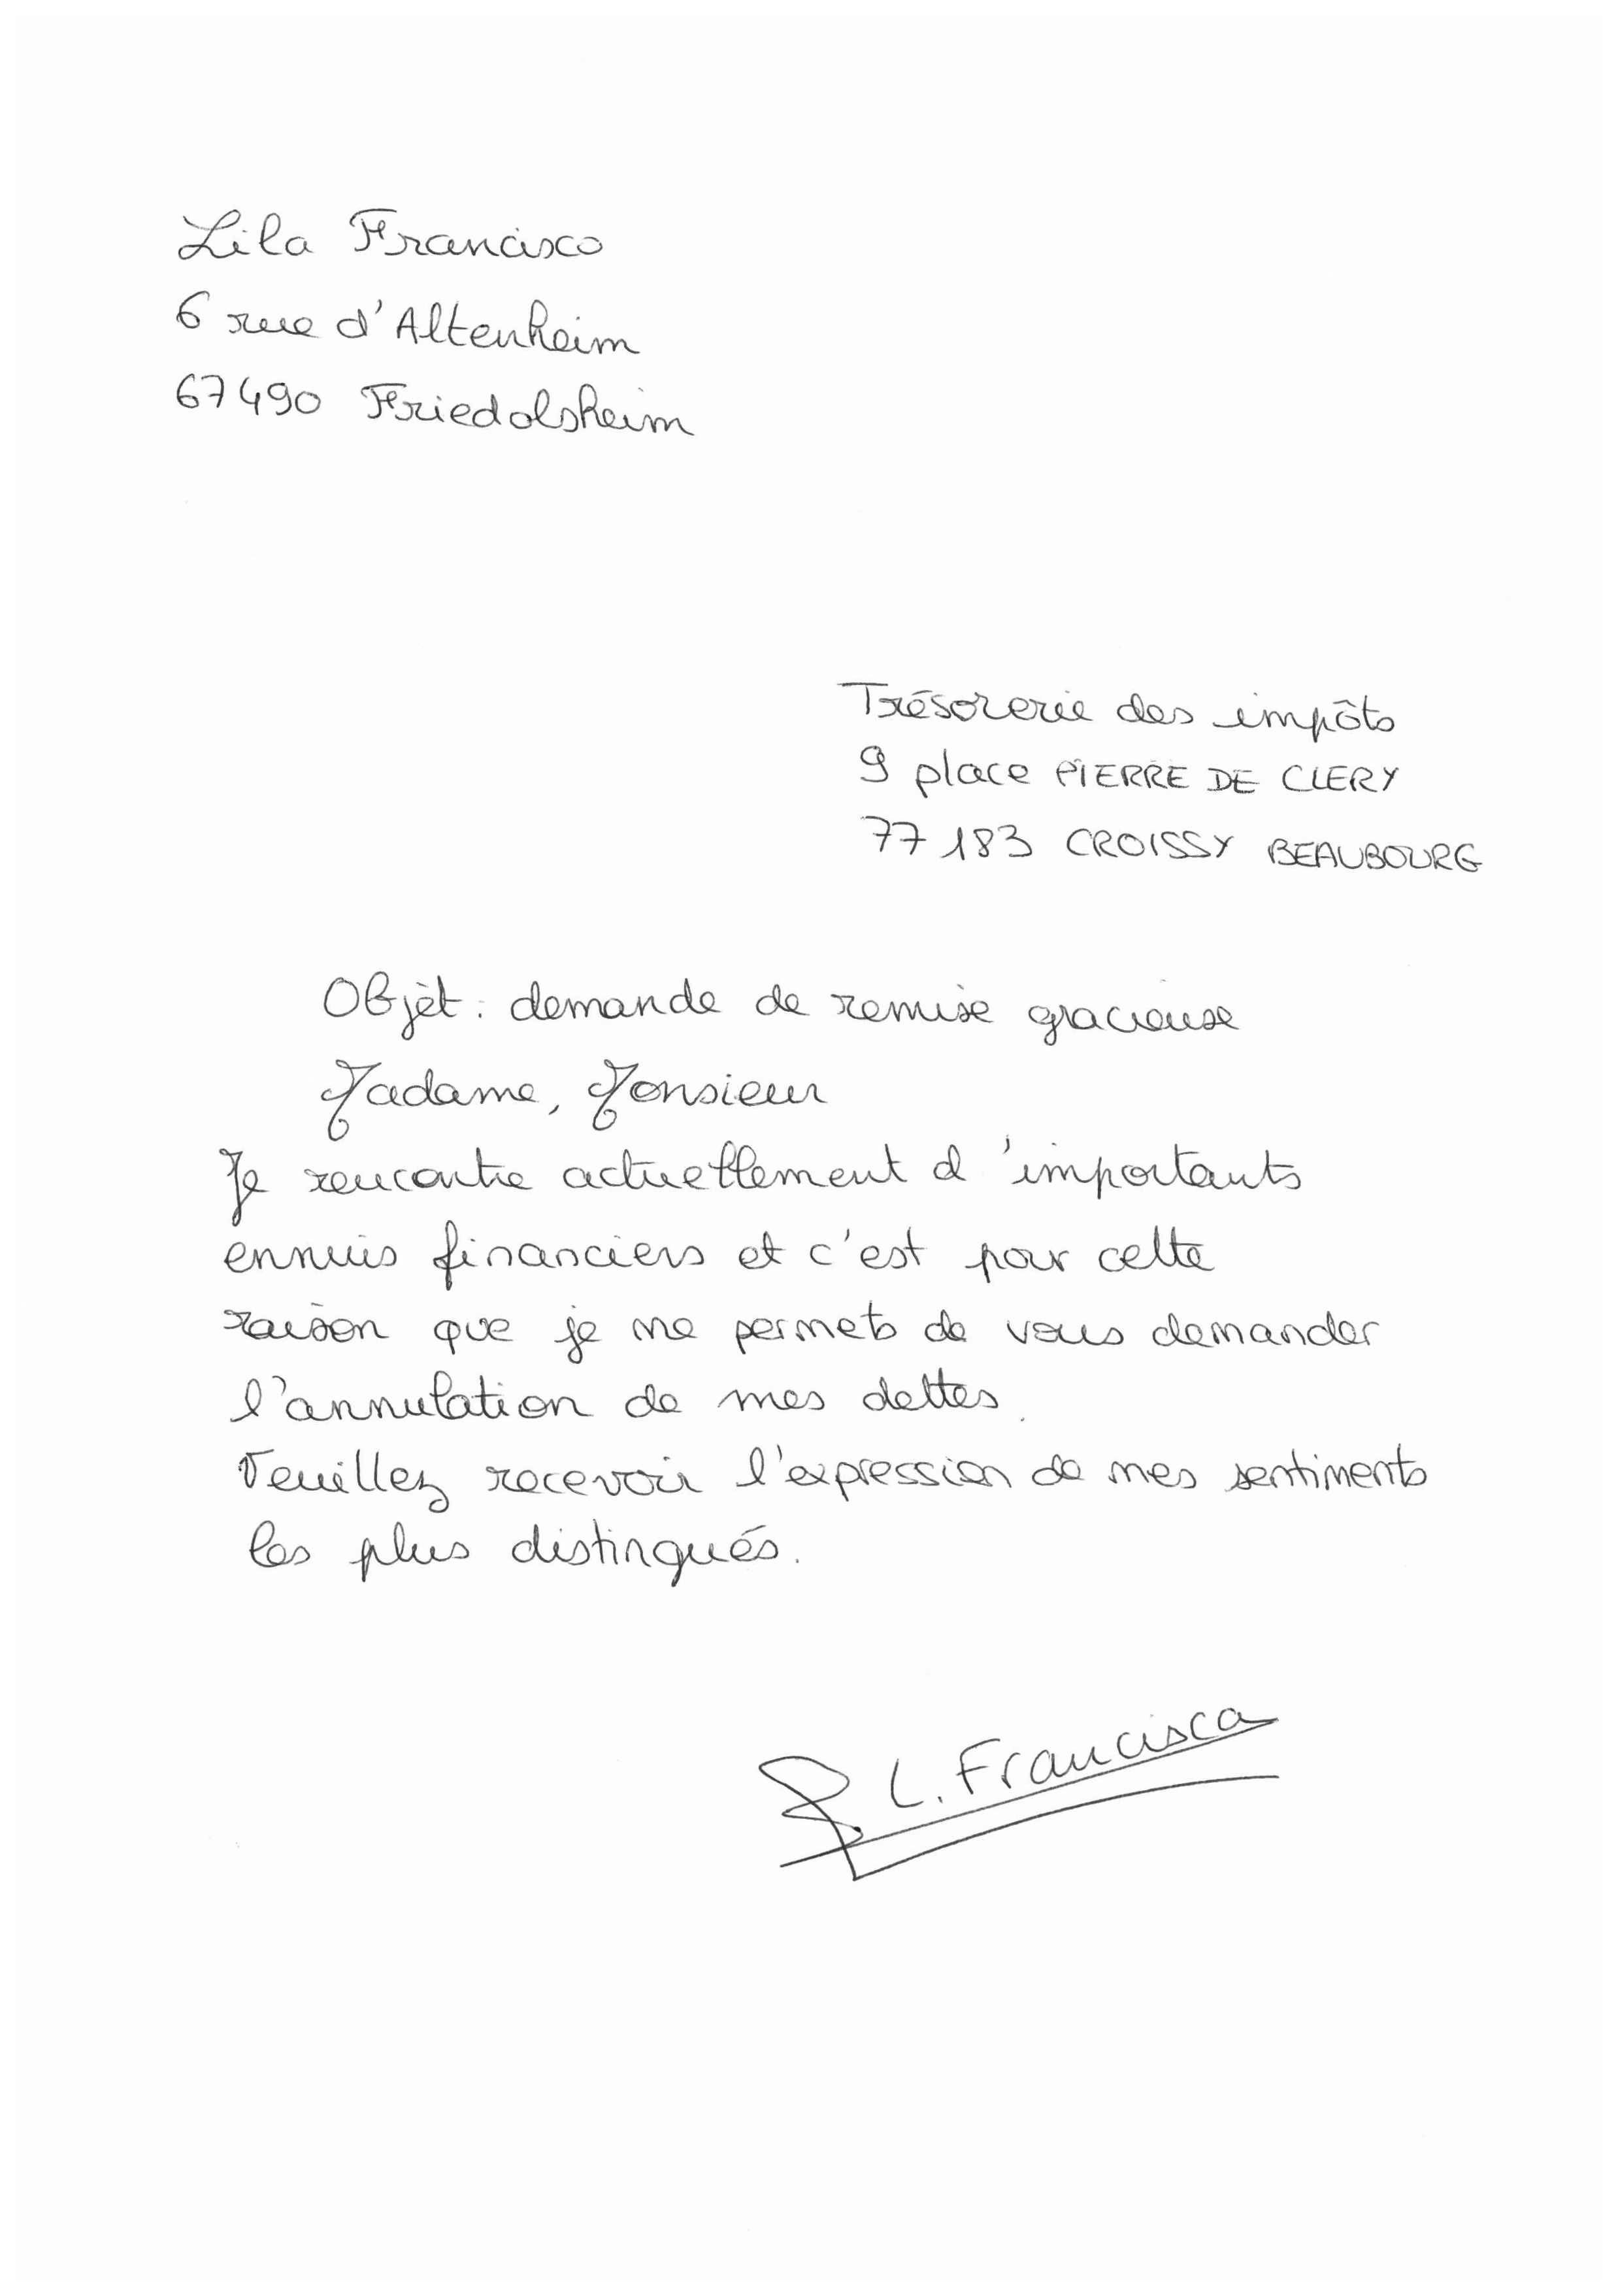 Lila Francisco
6 rue d'Altenheim
67490 Friedolsheim
Trésorerie des impôts
9 place PIERRE DE CLERY
77183 CROISSY BEAUBOURG
Objèt : demande de remise gracieuse
Madame, Monsieur
Je rencontre actuellement d'importants
ennuis financiers et c'est pour cette
raison que je me permets de vous demander
l'annulation de mes dettes.
Veuillez recevoir l'expression de mes sentiments
les plus distingués.
L. Francisca